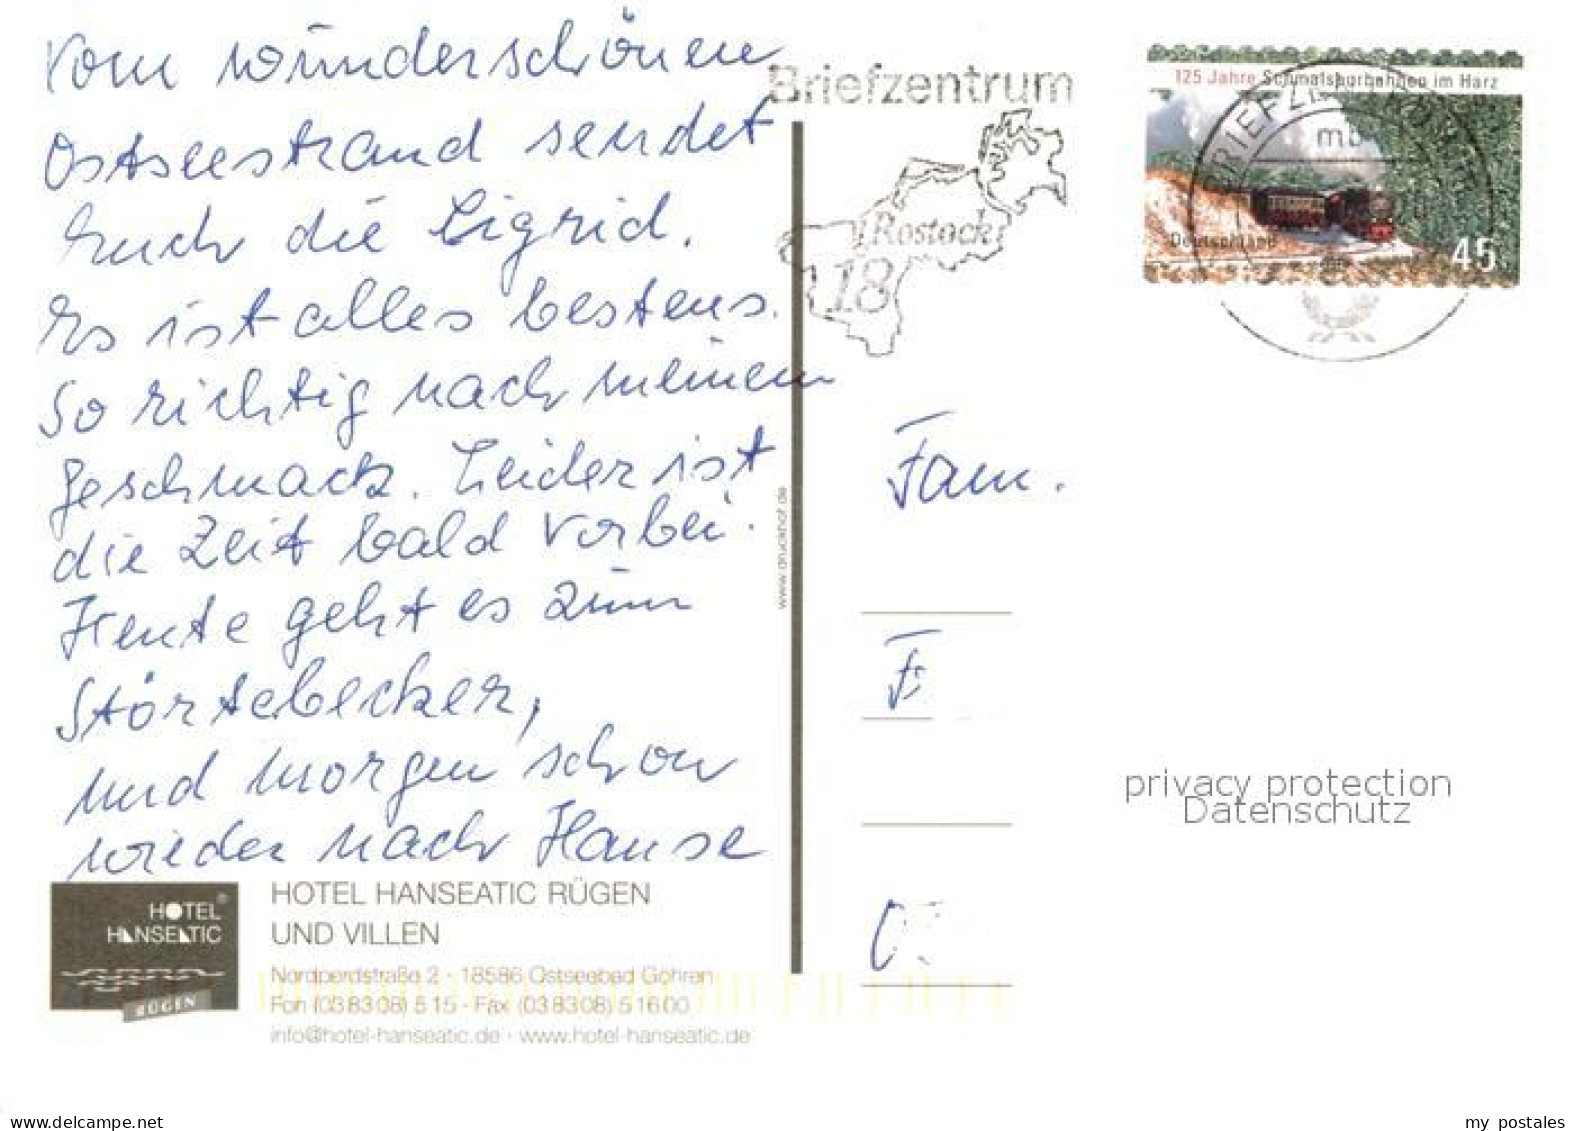 Vom wunderschönen
Ostseestrand sendet
Euch die Sigrid.
Es ist alles bestens.
So richtig nach meinem
Geschmack. Leider ist
die Zeit bald vorbei.
Heute geht es zum
Störtebecker,
und morgen schon
wieder nach Hause
HOTEL HANSEATIC RÜGEN
UND VILLEN
Nordperdstraße 2 · 18586 Ostseebad Göhren
Fon (03 83 08) 5 15 - Fax (03 83 08) 5 16 00
info@hotel-hanseatic.de · www.hotel-hanseatic.de
HOTEL®
HANSEATIC
RÜGEN
www.druckhof.de
Briefzentrum
Rostock
18
125 Jahre Schmalspurbahnen im Harz
Deutschland
45
BRIEFZ
mb
Fam.
F
privacy protection
Datenschutz
my postales
www.delcampe.net